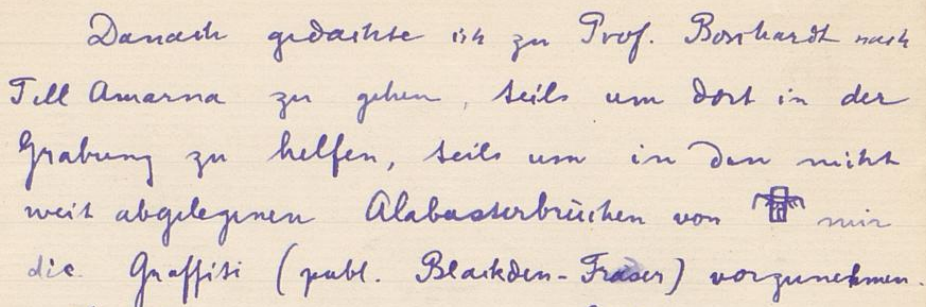 Danach gedachte ich zu Prof. Borchardt nach
Tell Amarna zu gehen, teils um dort in der
Grabung zu helfen, teils um in den nicht
weit abgelegenen Alabasterbrüchen von mir
die Graffiti (publ. Blackden-Fraser) vorzunehmen.